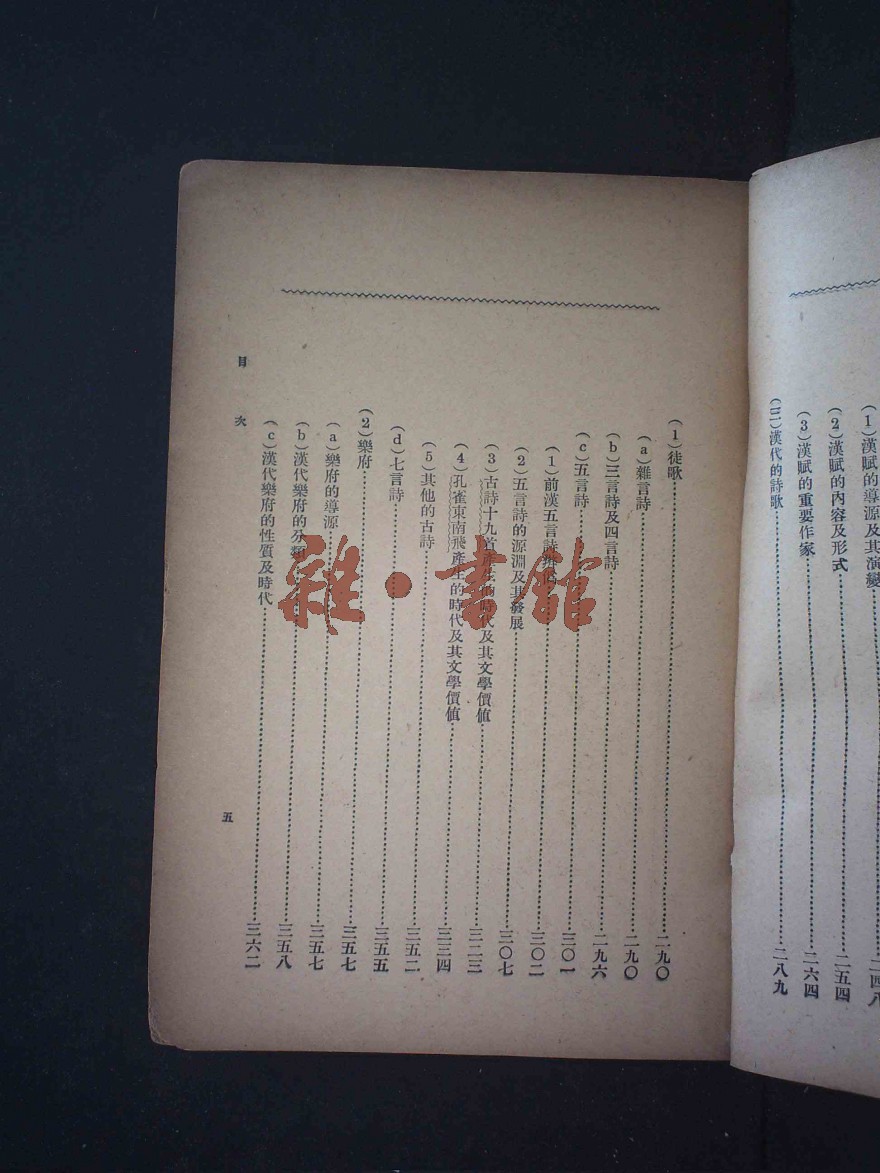 (1)漢賦的導源及其演變……二四八
(2)漢賦的內容及形式……二五四
(3)漢賦的重要作家……二六四
(三)漢代的詩歌……二八九
(1)徒歌……二九〇
(a)雜言詩……二九〇
(b)三言詩及四言詩……二九六
(c)五言詩……三〇一
(1)前漢五言詩……三〇二
(2)五言詩的源淵及其發展……三〇七
(3)古詩十九首產生的時代及其文學價值……三二三
(4)孔雀東南飛產生的時代及其文學價值……三三四
(5)其他的古詩……三五二
(d)七言詩……三五五
(2)樂府……三五七
(a)樂府的導源……三五七
(b)漢代樂府的分類……三五八
(c)漢代樂府的性質及時代……三六二
目次
五
雜·書館